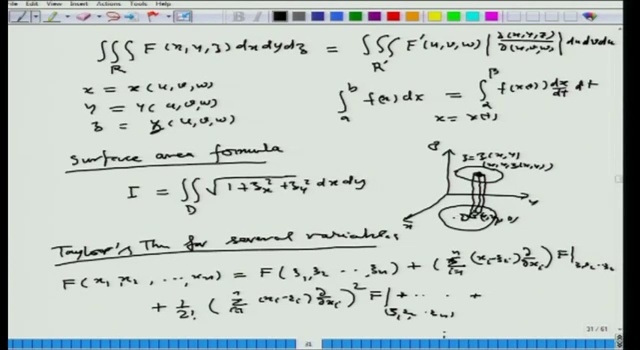 File Edit View Insert Actions Tools Help
∭_R F(x, y, z) dx dy dz = ∭_R' F'(u, v, w) |∂(x, y, z)/∂(u, v, w)| du dv dw
x = x(u, v, w)
y = y(u, v, w)
z = z(u, v, w)
∫_a^b f(x) dx = ∫_α^β f(x(t)) dx/dt dt
x = x(t)
Surface area formula
I = ∬_D √(1 + z_x² + z_y²) dx dy
z
z = z(x, y)
(x, y, z(x, y))
y
x
D (x, y, 0)
Taylor's Thm for several variables
F(x₁, x₂, ..., xₙ) = F(ξ₁, ξ₂ ..., ξₙ) + (Σ_{i=1}^n (xᵢ - ξᵢ) ∂/∂xᵢ) F|_{ξ₁, ξ₂ .. ξₙ}
+ 1/2! (Σ_{i=1}^n (xᵢ - ξᵢ) ∂/∂xᵢ)² F|_{(ξ₁, ξ₂, .. ξₙ)} + ... +
31 / 61